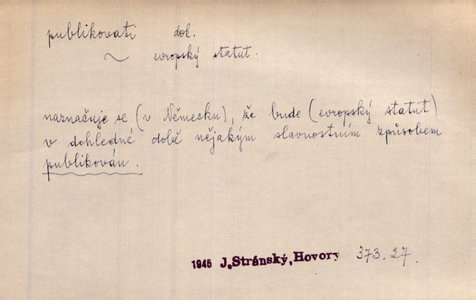 publikovati dok.
~ evropský statut.
naznačuje se (v Německu), že bude (evropský statut)
v dohledné době nějakým slavnostním způsobem
publikován.
1946 J. Stránský, Hovory 373.27.